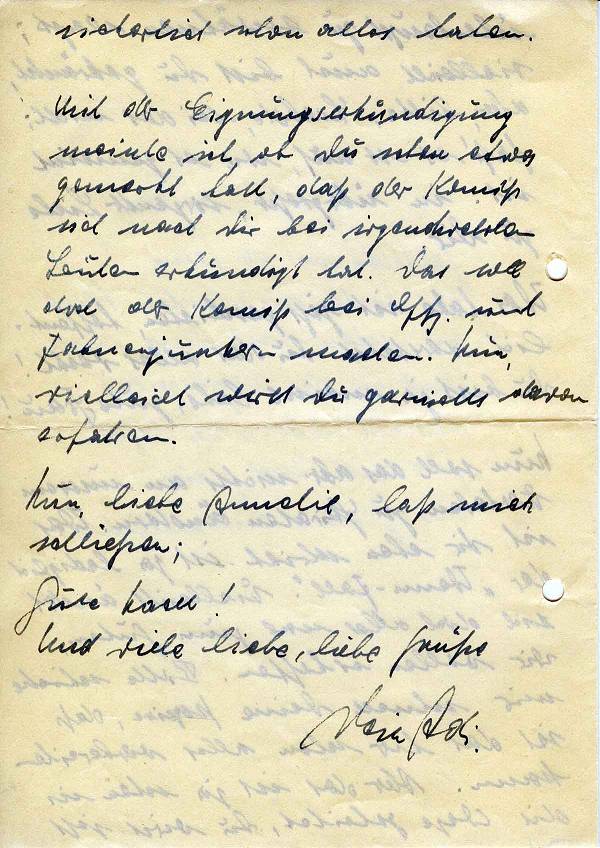 sicherlich schon alles haben.
Mit der Eignungserkündigung
meinte ich, ob Du schon etwas
gemerkt hast, daß der Komiß
sich nach Dir bei irgendwelchen
Leuten erkündigt hat. Das soll
doch der Komiß bei Offz. und
Fahnenjunkern machen. Nun,
vielleicht wirst Du garnichts davon
erfahren.
Nun, liebe Annelie, laß mich
schließen;
Gute Nacht!
Und viele liebe, liebe Grüße
Dein Adi.